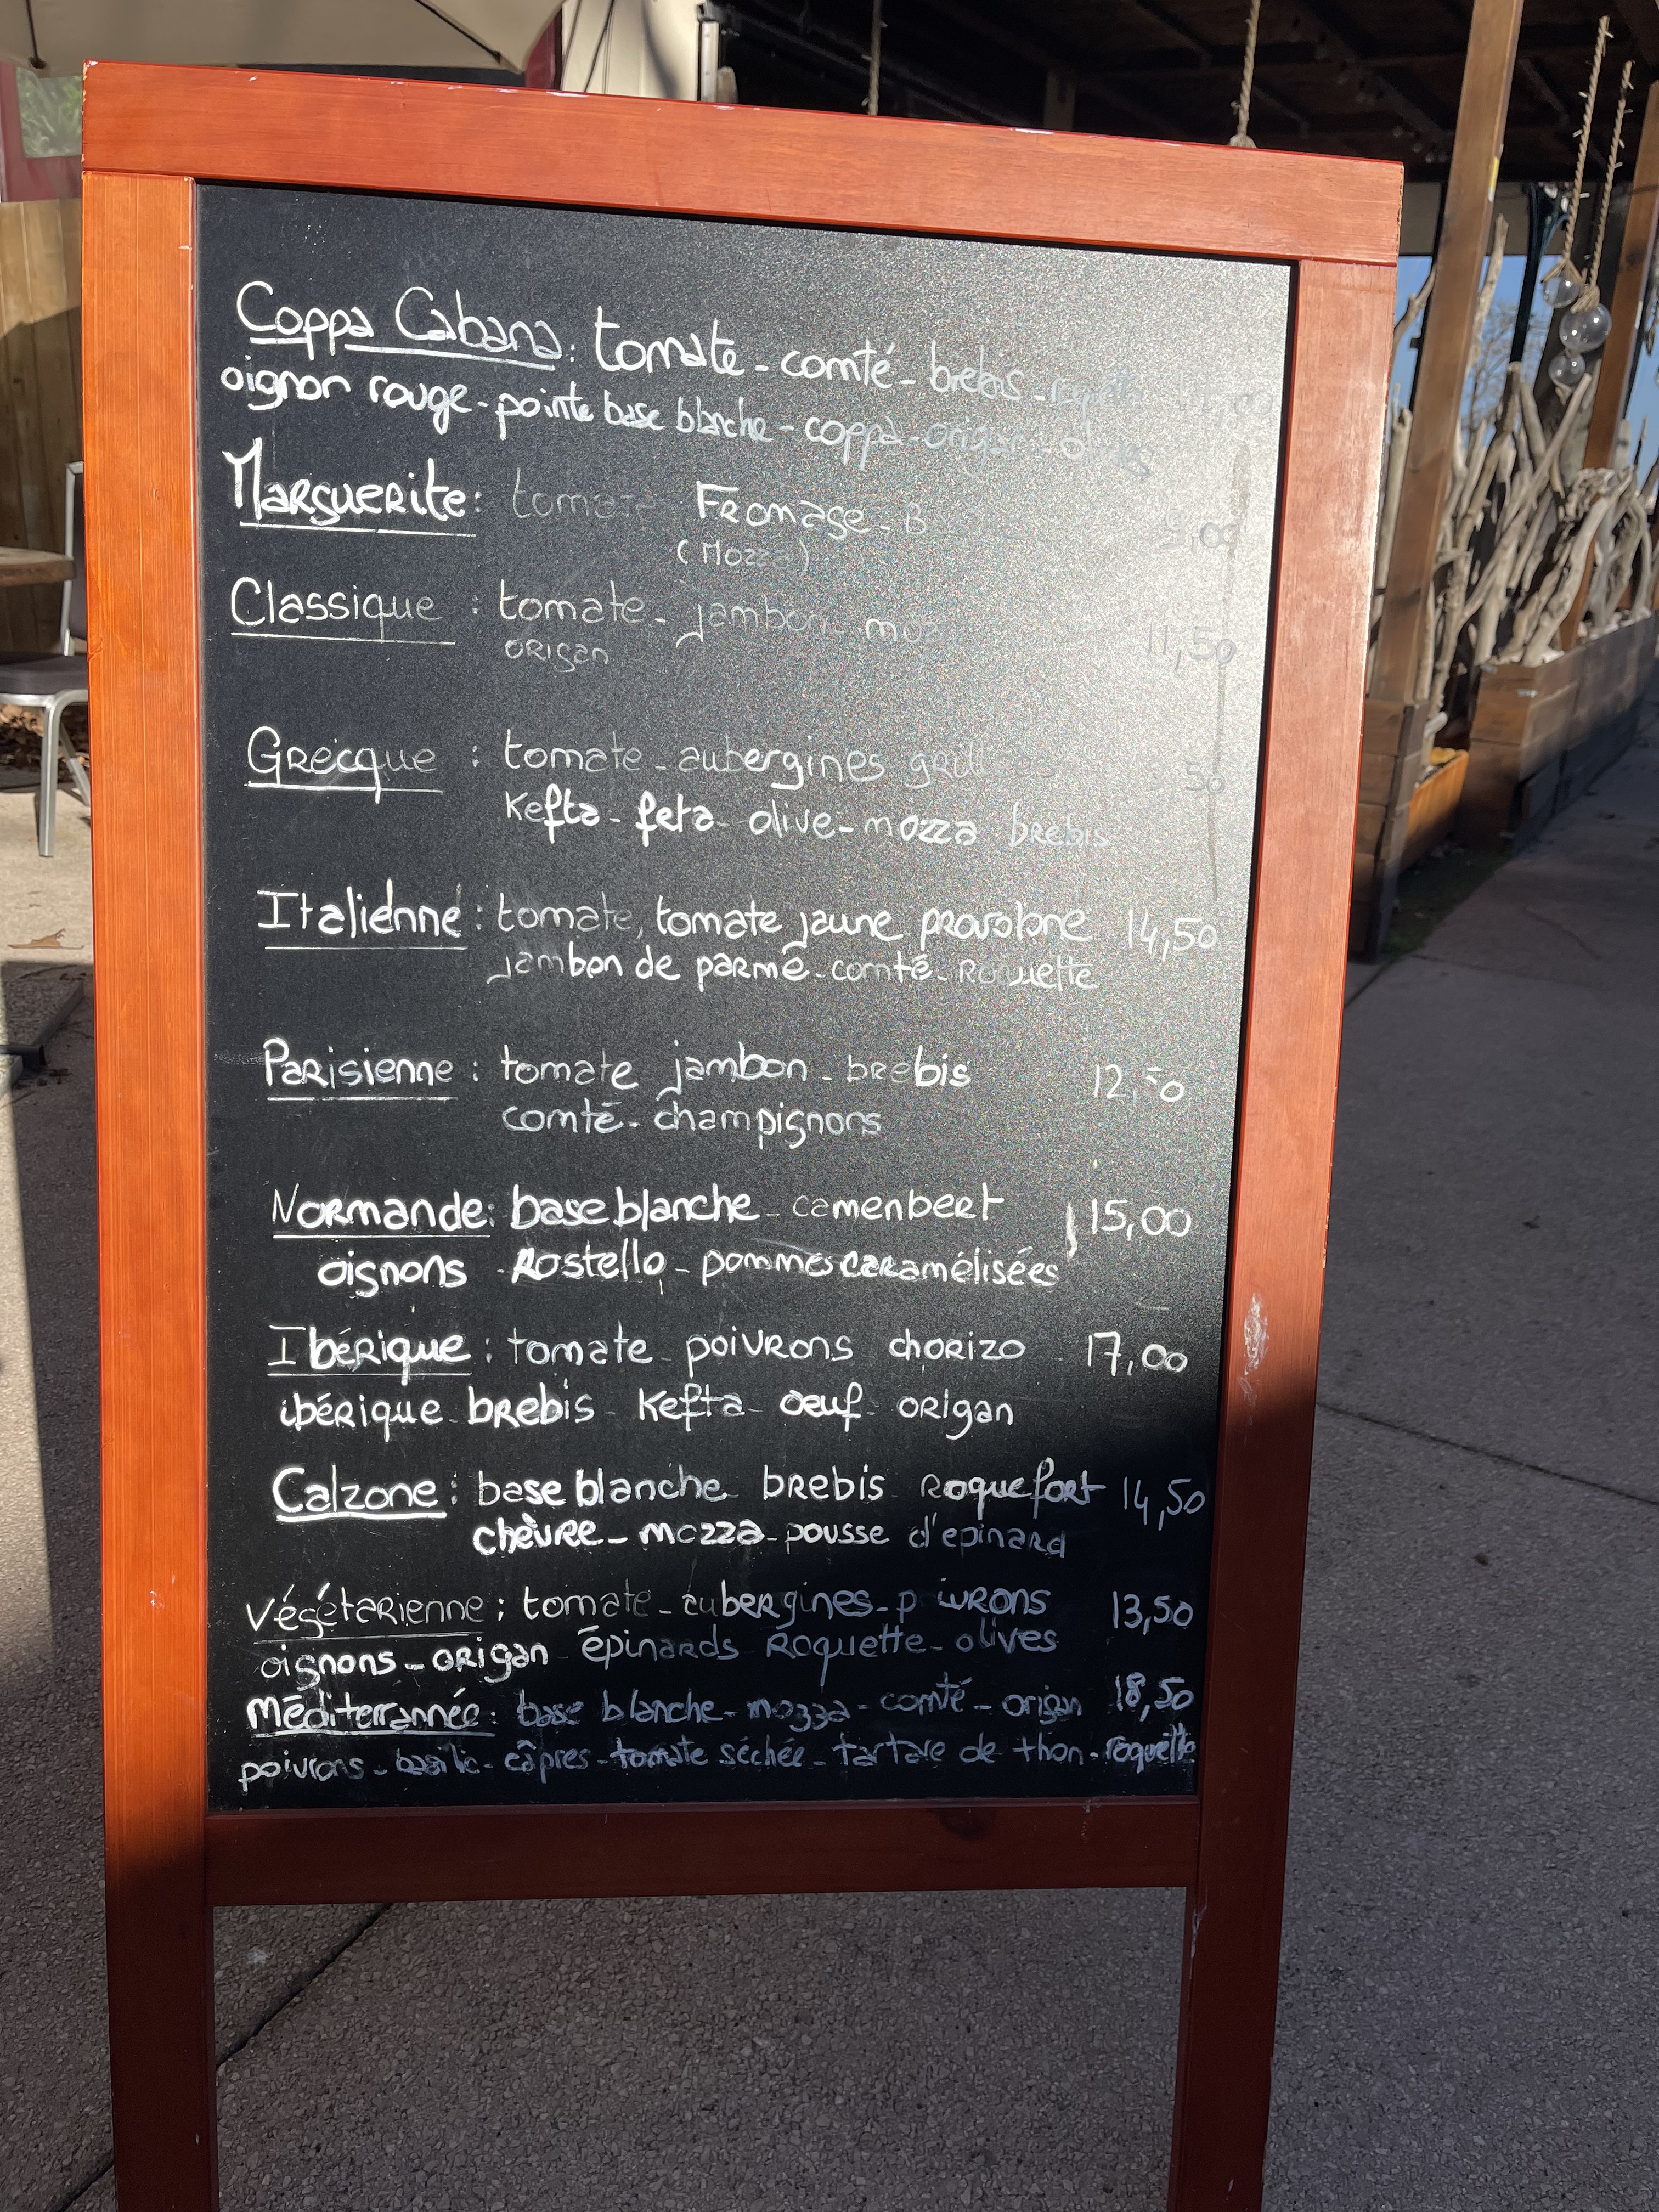 Coppa Cabana: tomate - comté - brebis
oignon rouge - pointe base blanche - coppa - origan -
Marguerite: tomate Fromage -
(Mozza)
Classique : tomate - jambon - 11,50
origan
Grecque : tomate - aubergines
Kefta - feta - olive - mozza brebis
Italienne : tomate, tomate jaune provolone 14,50
jambon de parme - comté - Roquette
Parisienne : tomate jambon - brebis
comté - champignons
Normande: base blanche - camenbert 15,00
oignons - Rostello - pommes caramélisées
Ibérique : tomate - poivrons chorizo - 17,00
ibérique - brebis - Kefta - oeuf - origan
Calzone : base blanche brebis Roquefort 14,50
chèvre - mozza - pousse d'epinard
Végétarienne : tomate - aubergines - 13,50
oignons - origan - épinards Roquette - olives
Méditerrannée : base blanche - mozza - comté - origan 18,50
poivrons - basilic - câpres - tomate séchée - tartare de thon - roquette